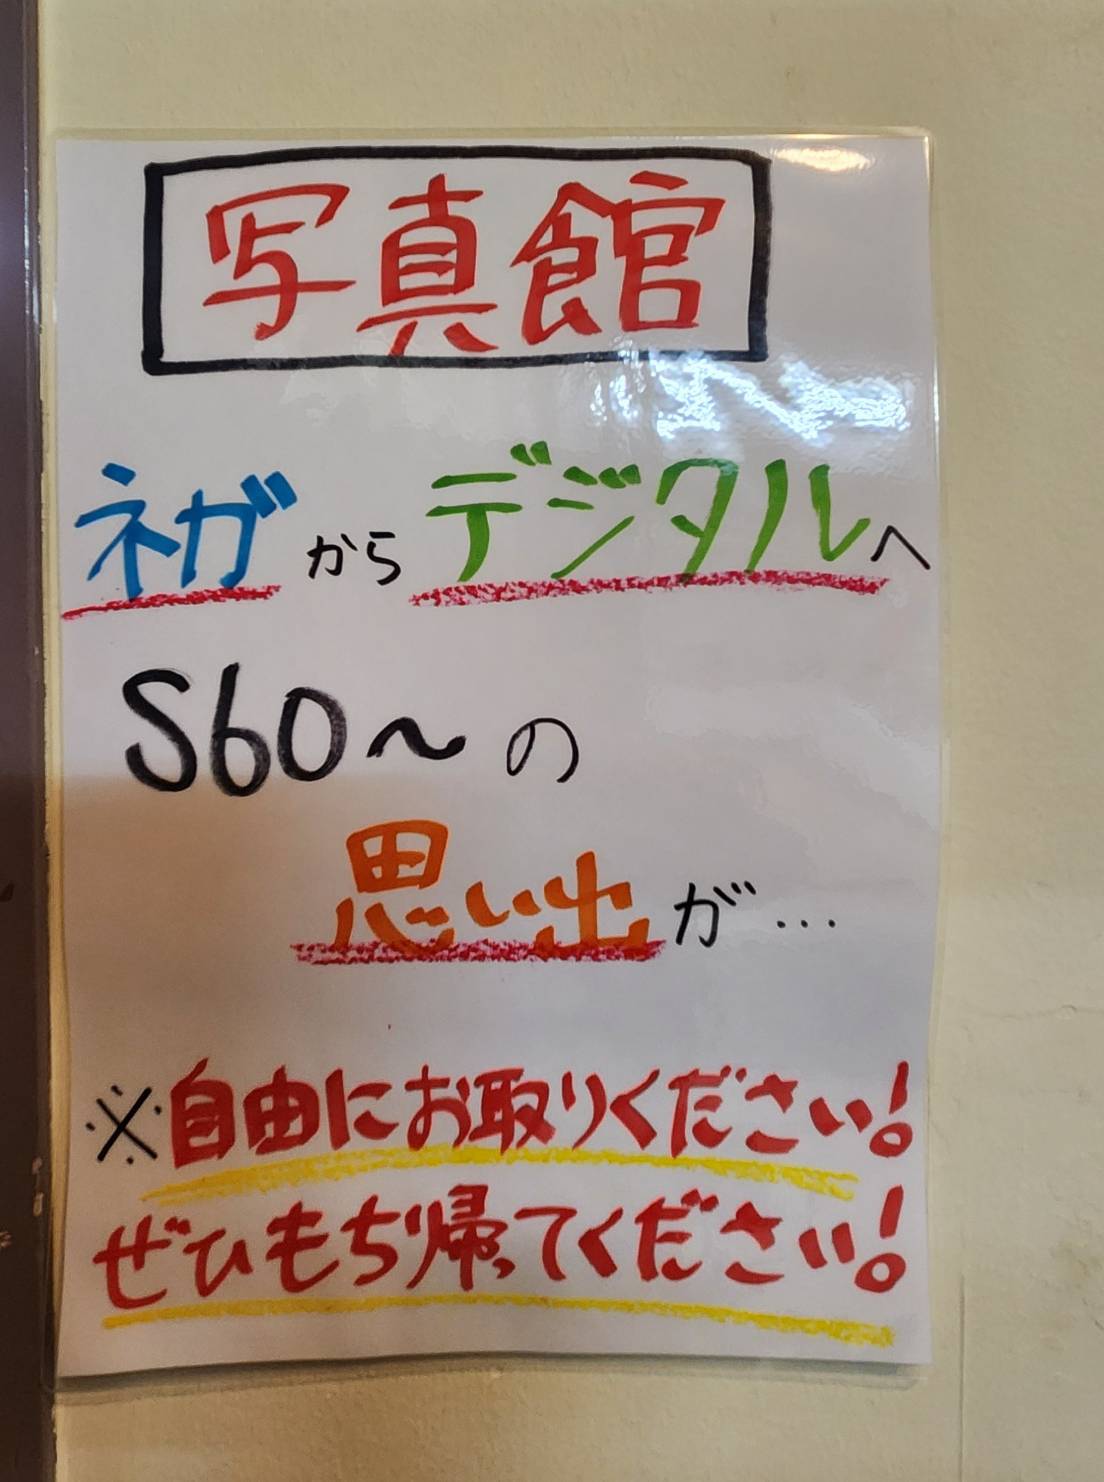 写真館
ネガからデジタルへ
S60〜の
思い出が…
※自由にお取りください!
ぜひもち帰ってください!